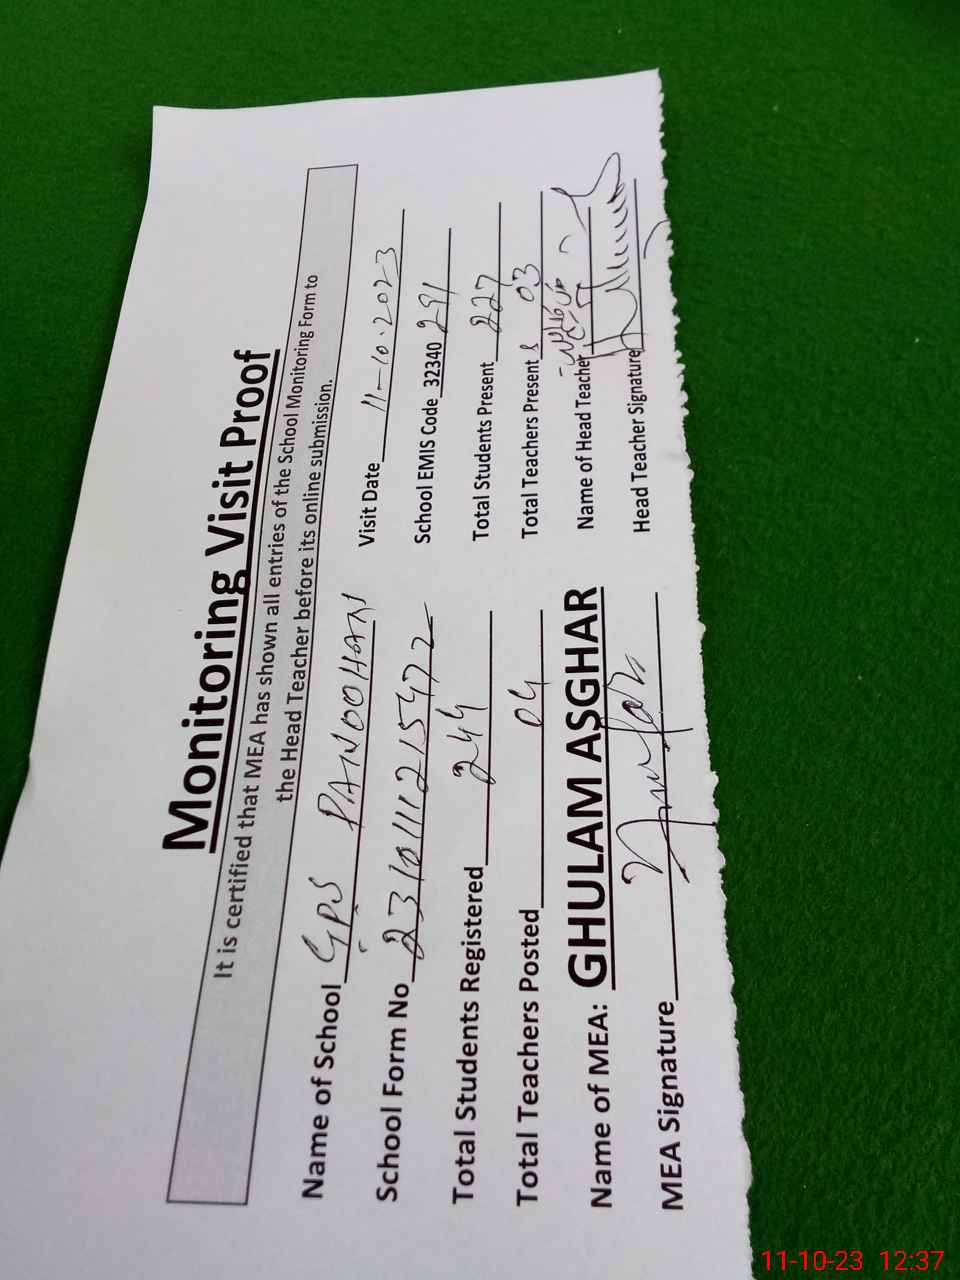 Monitoring Visit Proof
It is certified that MEA has shown all entries of the School Monitoring Form to
the Head Teacher before its online submission.
Name of School GPS PANOOHAN Visit Date 11-10-2023
School Form No 2310111215972 School EMIS Code 32340 291
Total Students Registered 244 Total Students Present 227
Total Teachers Posted 04 Total Teachers Present 03
Name of MEA: GHULAM ASGHAR Name of Head Teacher
MEA Signature Head Teacher Signature
11-10-23 12:37